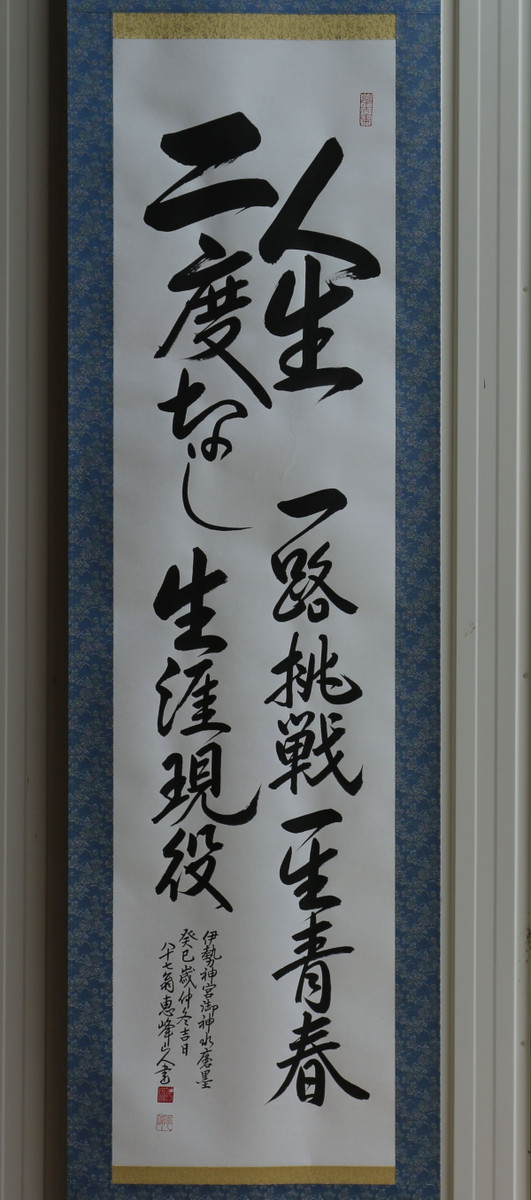 人生 一路挑戦 一生青春
二度なし 生涯現役
伊勢神宮御神水磨墨
癸巳歳仲冬吉日
八十七翁 恵峰山人書